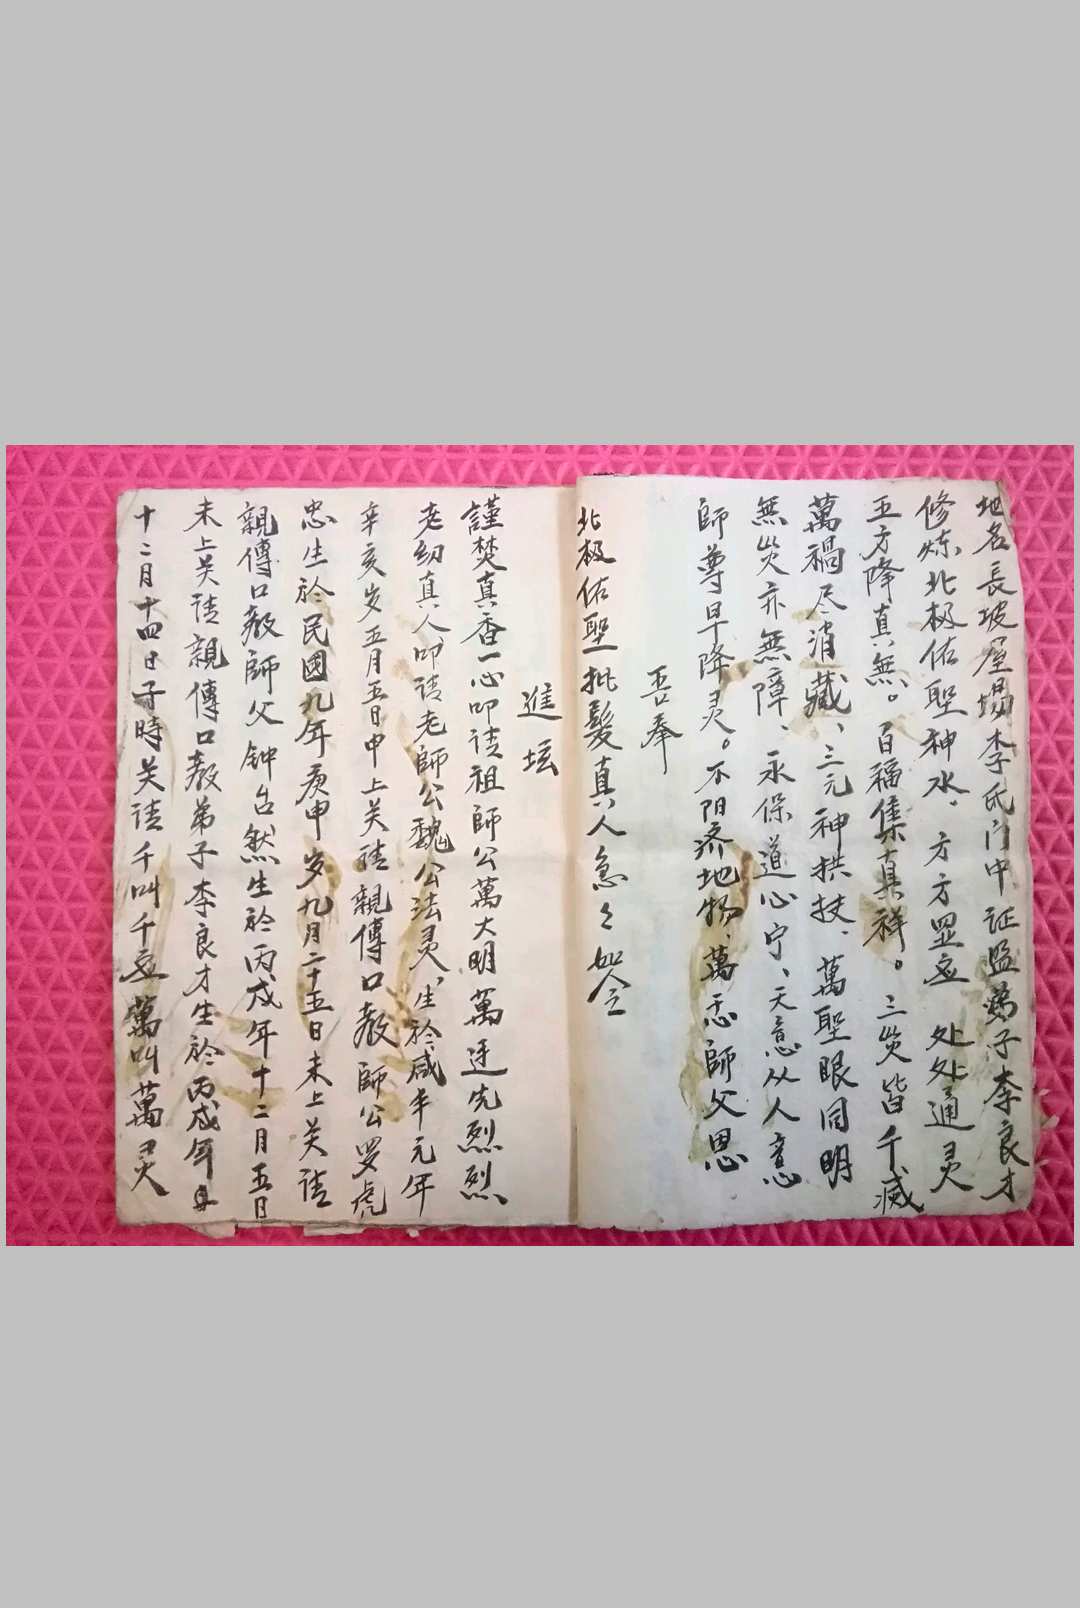 地名長坡屋場李氏门中证盟弟子李良才
修炼北极佑聖神水、方方罡应处处通灵
五方降真無。百福集真祥。三災皆千减
萬禍尽消藏、三元神拱扶、萬聖眼同明
無災亦無障、永保道心宁、天意从人意
師尊早降灵。不阳济地物、萬丕師父恩
吾奉
北极佑聖批髮真人急々如令
進坛
謹焚真香一心叩请祖師公萬大明萬廷先烈烈
老幼真人叩请老師公魏公法灵、生於咸丰元年
辛亥岁五月五日中上关请親傳口教師公罗虎
忠生於民國九年庚申岁九月二十五日未上关请
親傳口教師父钟台然生於丙戌年十二月五日
未上关请親傳口教弟子李良才生於丙戌年
十二月十四日子時关请千叫千应萬叫萬灵